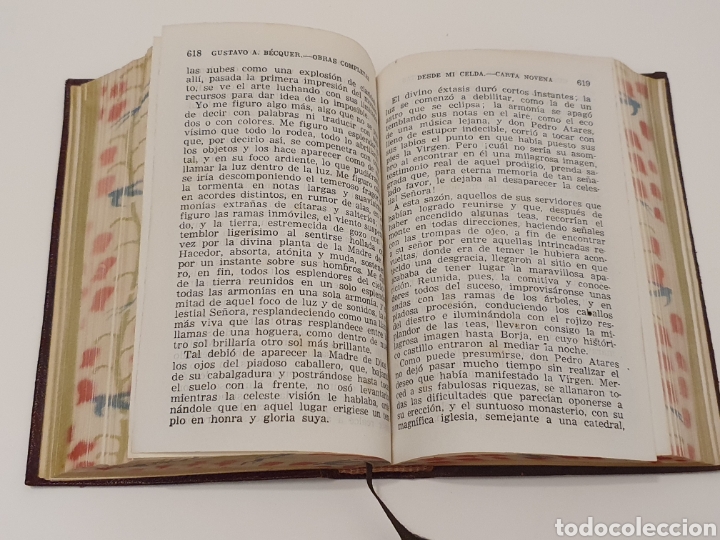 618 GUSTAVO A. BÉCQUER.—OBRAS COMPLETAS
las nubes como una explosión de
allí, pasada la primera impresión del
to, se ve al arte luchando con sus
recursos para dar idea de lo imposible
Yo me figuro algo más, algo que no
de decir con palabras ni traducir con
o con colores. Me figuro un
vísimo que todo lo rodea, todo lo
que, por decirlo así, se compenetra con
los objetos y los hace aparecer como de
tal, y en su foco ardiente, lo que pu
llamar la luz dentro de la luz. Me figuro
se iría descomponiendo el temeroso fragor
la tormenta en notas largas y suavísimas
en acordes distintos, en rumor de alas, en
monías extrañas de cítaras y salterios;
figuro las ramas inmóviles, el viento suspen
do, y la tierra, estremecida de gozo con un
temblor ligerísimo al sentirse hollada otra
vez por la divina planta de la Madre de su
Hacedor, absorta, atónita y muda, sostenerla
por un instante sobre sus hombros. Me figu
ro, en fin, todos los esplendores del cielo y
de la tierra reunidos en un solo esplendor,
todas las armonías en una sola armonía, y en
mitad de aquel foco de luz y de sonidos, la ce
lestial Señora, resplandeciendo como una llama
más viva que las otras resplandece entre las
llamas de una hoguera, como dentro de nues
tro sol brillaría otro sol más brillante.
Tal debió de aparecer la Madre de Dios a
los ojos del piadoso caballero, que, bajando
de su cabalgadura y postrándose hasta tocar
el suelo con la frente, no osó levantarlos
mientras la celeste visión le hablaba, orde
nándole que en aquel lugar erigiese un tem
plo en honra y gloria suya.
DESDE MI CELDA.—CARTA NOVENA 619
El divino éxtasis duró cortos instantes; la
luz se comenzó a debilitar, como la de un
astro que se eclipsa; la armonía se apagó
temblando sus notas en el aire, como el eco
de una música lejana, y don Pedro Atares,
lleno de estupor indecible, corrió a tocar con
los labios el punto en que había puesto sus
pies la Virgen. Pero ¡cuál no sería su asom-
bro al encontrar en él una milagrosa imagen,
testimonio real de aquel prodigio, prenda sa-
grada que, para eterna memoria de tan seña-
lado favor, le dejaba al desaparecer la celes-
tial Señora!
A esta sazón, aquellos de sus servidores que
habían logrado reunirse y que, después de
haber encendido algunas teas, recorrían el
monte en todas direcciones, haciendo señales
con las trompas de ojeo, a fin de encontrar
a su señor por entre aquellas intrincadas re-
vueltas, donde era de temer le hubiera acon-
tecido una desgracia, llegaron al sitio en que
acababa de tener lugar la maravillosa apari-
ción. Reunida, pues, la comitiva y conoce-
dores todos del suceso, improvisáronse unas
andas con las ramas de los árboles, y en
piadosa procesión, conduciendo los caballos
del diestro e iluminándola con el rojizo res-
plandor de las teas, llevaron consigo la mi-
lagrosa imagen hasta Borja, en cuyo histó-
rico castillo entraron al mediar la noche.
Como puede presumirse, don Pedro Atares
no dejó pasar mucho tiempo sin realizar el
deseo que había manifestado la Virgen. Mer-
ced a sus fabulosas riquezas, se allanaron to-
das las dificultades que parecían oponerse a
su erección, y el suntuoso monasterio, con su
magnífica iglesia, semejante a una catedral,
todocoleccion